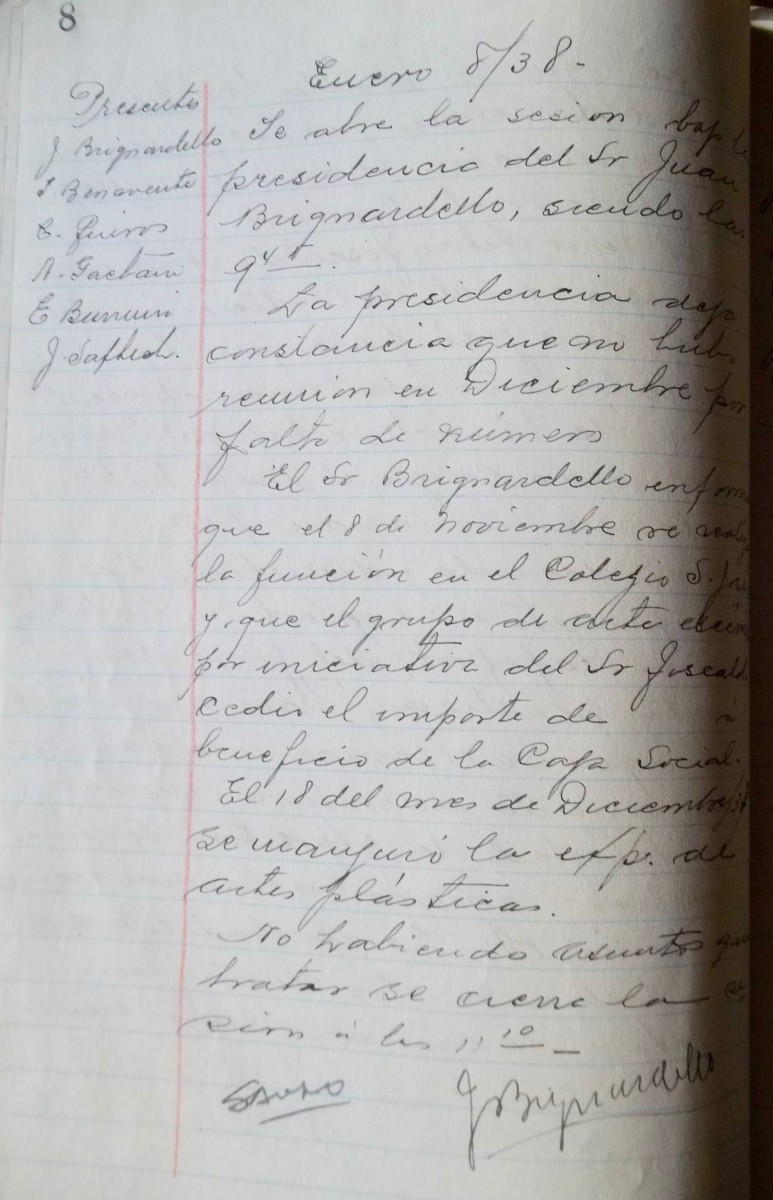 8
Enero 8/38.-
Presentes
J. Brignardello
J. Benavente
C. Queiros
A. Gaetani
E Bunuin
J. Saftich.
Se abre la sesion bajo la
presidencia del Sr Juan
Brignardello, siendo las
9 45.
La presidencia deja
constancia que no hubo
reunion en Diciembre por
falta de número
El Sr Brignardello inform
que el 8 de noviembre se
la función en el Colegio S. José
y que el grupo de arte escén
por iniciativa del Sr
cedio el importe de á
beneficio de la Caja Social.
El 18 del mes de Diciembre/37
se inauguró la exp. de
artes plásticas.
No habiendo asuntos que
tratar se cierra la se
sion á las 11 10 —
JBrignardello